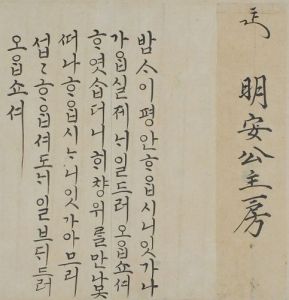 明安公主房
밤ᄉᆞ이평안ᄒᆞ옵시니잇가나
가옵실제ᄂᆡ일드러오옵쇼셔
ᄒᆞ엿ᄉᆞᆸ더니ᄒᆡ챵위를만나못
ᄯᅥ나ᄒᆞ옵시ᄂᆞ니잇가아므리
섭〻ᄒᆞ옵셔도ᄂᆡ일브ᄃᆡ드러
오옵쇼셔